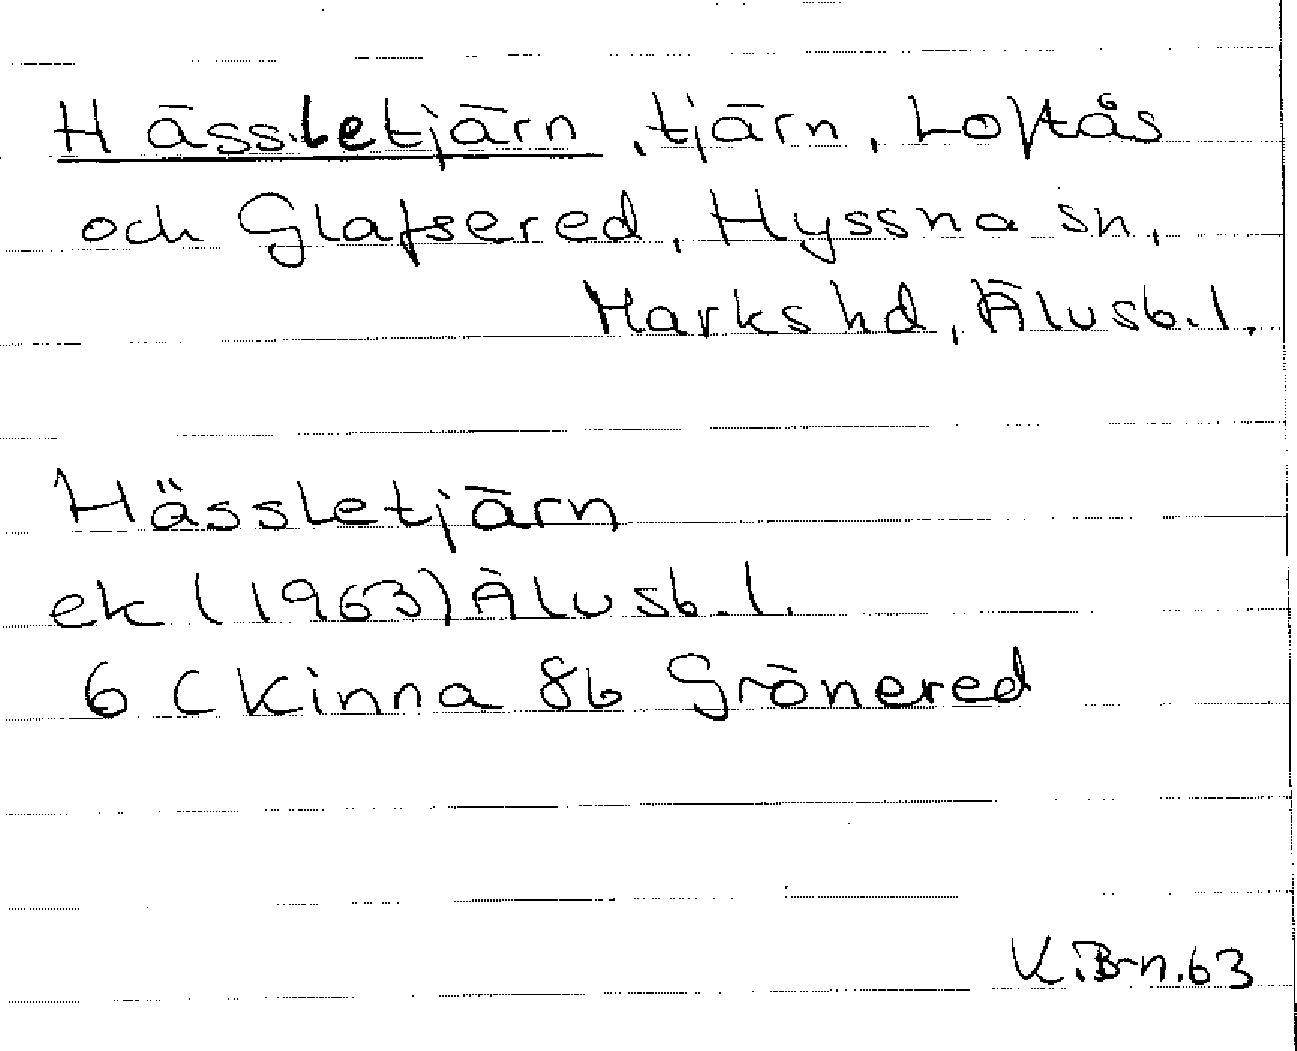 Hässletjärn, tjärn, Loftås
och Glafsered, Hyssna sn,
Marks hd, Älvsb.l.
Hässletjärn
ek (1963) Älvsb.l.
6 C Kinna 8b Grönered
K.B-n.63